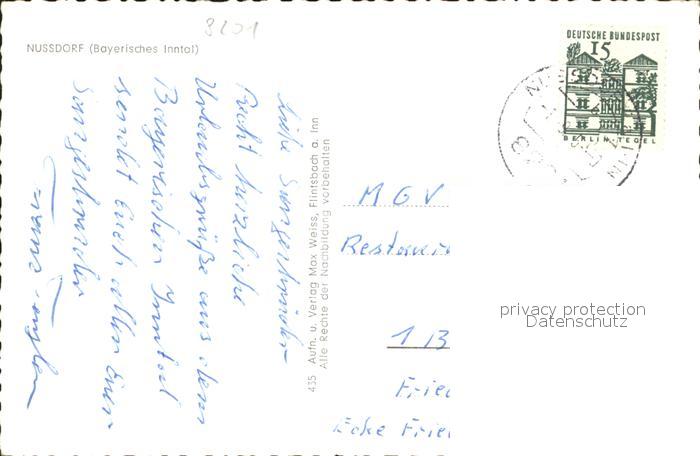 8201
NUSSDORF (Bayerisches Inntal)
DEUTSCHE BUNDESPOST
15
BERLIN-TEGEL
Liebe Sangesbrüder
Recht herzliche
Urlaubsgrüße aus dem
Bayerischen Inntal
sendet Euch allen Euer
Sangesbruder
435 Aufn. u. Verlag Max Weiss, Flintsbach a. Inn
Alle Rechte der Nachbildung vorbehalten
MGV
Restaur
1 B
Fried
Ecke Frie
privacy protection
Datenschutz